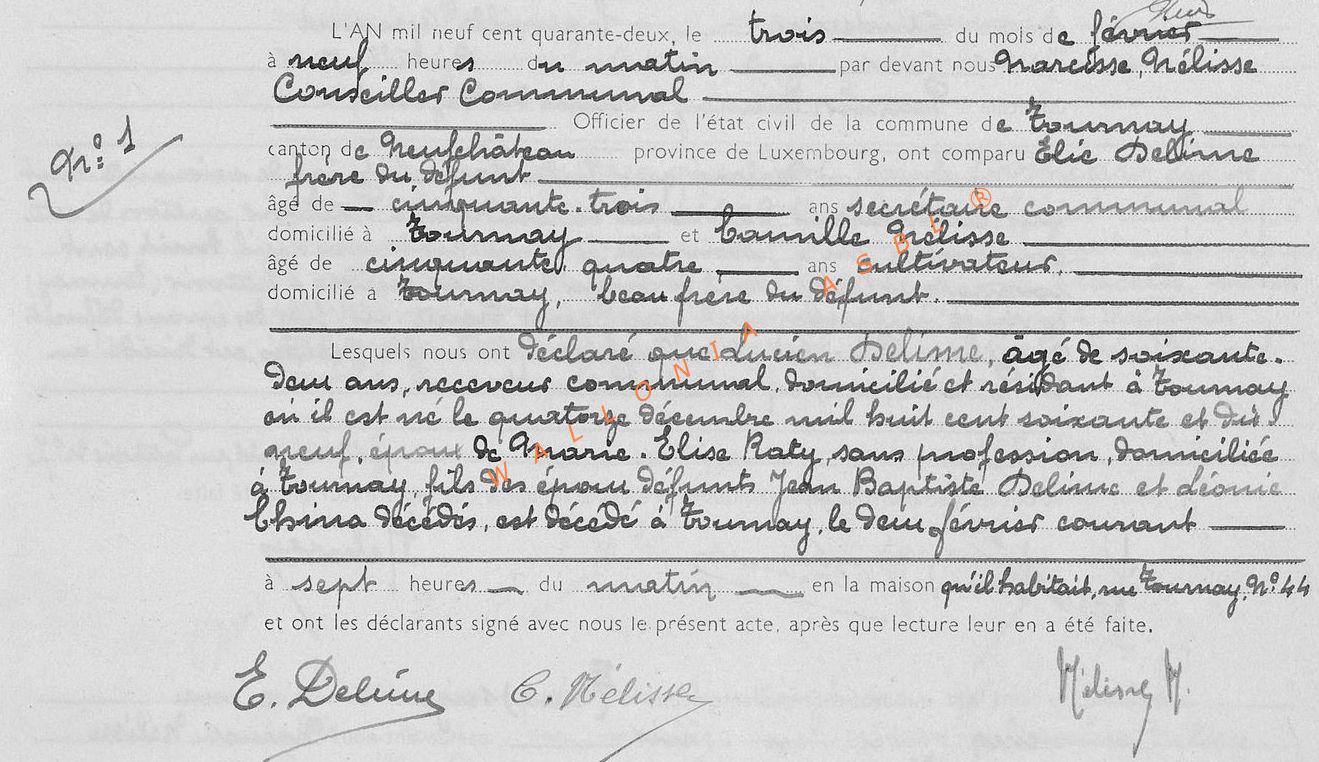 L'AN mil neuf cent quarante-deux, le trois du mois de février
à neuf heures du matin par devant nous Narcisse, Mélisse
Conseiller Communal
Officier de l'état civil de la commune de Tournay
N° 1
canton de Neufchâteau province de Luxembourg, ont comparu Elie Delime
frère du défunt
âgé de cinquante-trois ans secrétaire communal
domicilié à Tournay et Camille Mélisse
âgé de cinquante quatre ans cultivateur,
domicilié à Tournay, beau frère du défunt.
Lesquels nous ont déclaré que Lucien Delime, âgé de soixante-
deux ans, receveur communal, domicilié et résidant à Tournay
où il est né le quatorze décembre mil huit cent soixante et dix-
neuf, époux de Marie-Elise Raty, sans profession, domiciliée
à Tournay, fils des époux défunts Jean Baptiste Delime et Léonie
China décédés, est décédé à Tournay, le deux février courant
à sept heures du matin en la maison qu'il habitait, rue Tournay, N° 44
et ont les déclarants signé avec nous le présent acte, après que lecture leur en a été faite.
E. Delime C. Mélisse Mélisse N.
WALLONIA ASBL ®